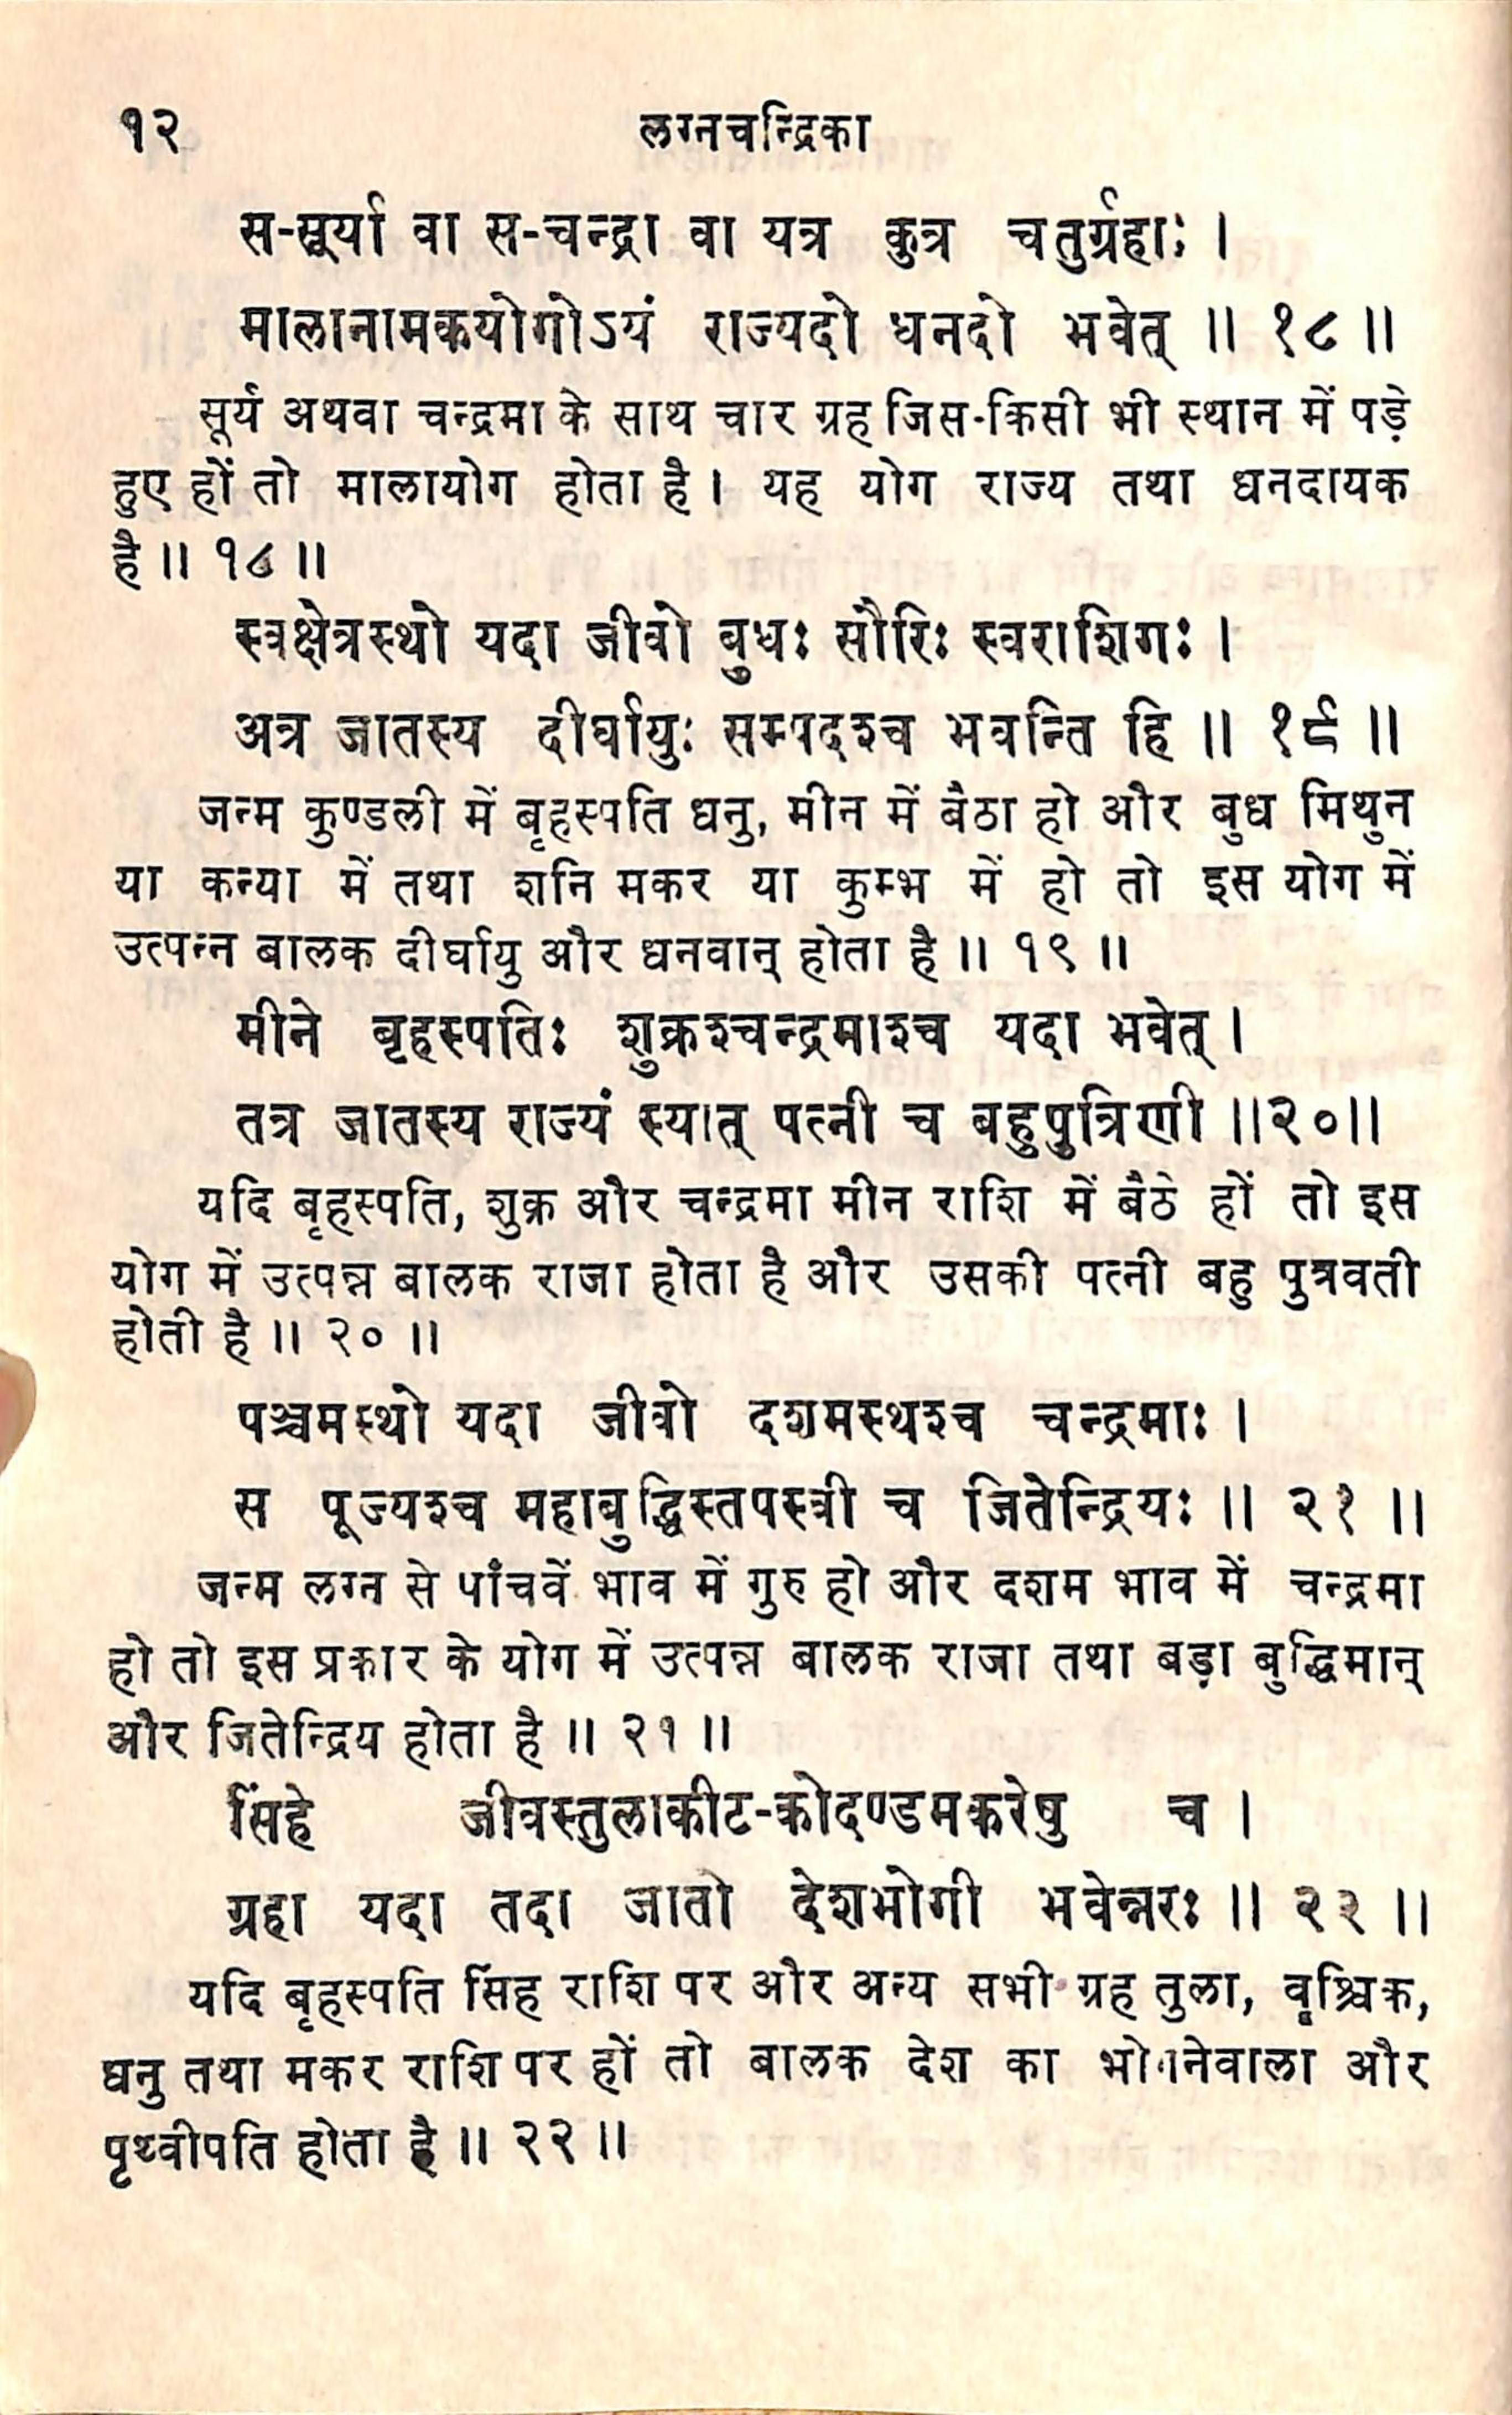 १२ लग्नचन्द्रिका
स-सूर्या वा स-चन्द्रा वा यत्र कुत्र चतुर्ग्रहाः ।
मालानामकयोगोऽयं राज्यदो धनदो भवेत् ॥ १८ ॥
सूर्य अथवा चन्द्रमा के साथ चार ग्रह जिस-किसी भी स्थान में पड़े
हुए हों तो मालायोग होता है । यह योग राज्य तथा धनदायक
है ॥ १८ ॥
स्वक्षेत्रस्थो यदा जीवो बुधः सौरिः स्वराशिगः ।
अत्र जातस्य दीर्घायुः सम्पदश्च भवन्ति हि ॥ १९ ॥
जन्म कुण्डली में बृहस्पति धनु, मीन में बैठा हो और बुध मिथुन
या कन्या में तथा शनि मकर या कुम्भ में हो तो इस योग में
उत्पन्न बालक दीर्घायु और धनवान् होता है ॥ १९ ॥
मीने बृहस्पतिः शुक्रश्चन्द्रमाश्च यदा भवेत् ।
तत्र जातस्य राज्यं स्यात् पत्नी च बहुपुत्रिणी ॥२०॥
यदि बृहस्पति, शुक्र और चन्द्रमा मीन राशि में बैठे हों तो इस
योग में उत्पन्न बालक राजा होता है और उसकी पत्नी बहु पुत्रवती
होती है ॥ २० ॥
पञ्चमस्थो यदा जीवो दशमस्थश्च चन्द्रमाः ।
स पूज्यश्च महाबुद्धिस्तपस्वी च जितेन्द्रियः ॥ २१ ॥
जन्म लग्न से पाँचवें भाव में गुरु हो और दशम भाव में चन्द्रमा
हो तो इस प्रकार के योग में उत्पन्न बालक राजा तथा बड़ा बुद्धिमान्
और जितेन्द्रिय होता है ॥ २१ ॥
सिंहे जीवस्तुलाकीट-कोदण्डमकरेषु च ।
ग्रहा यदा तदा जातो देशभोगी भवेन्नरः ॥ २२ ॥
यदि बृहस्पति सिंह राशि पर और अन्य सभी ग्रह तुला, वृश्चिक,
धनु तथा मकर राशि पर हों तो बालक देश का भोगनेवाला और
पृथ्वीपति होता है ॥ २२ ॥